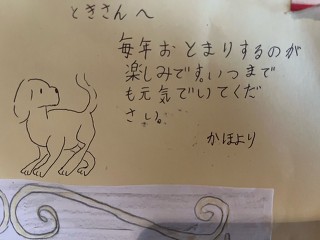 ときさんへ
毎年おとまりするのが
楽しみです。いつまで
も元気でいてくだ
さい。
かほより